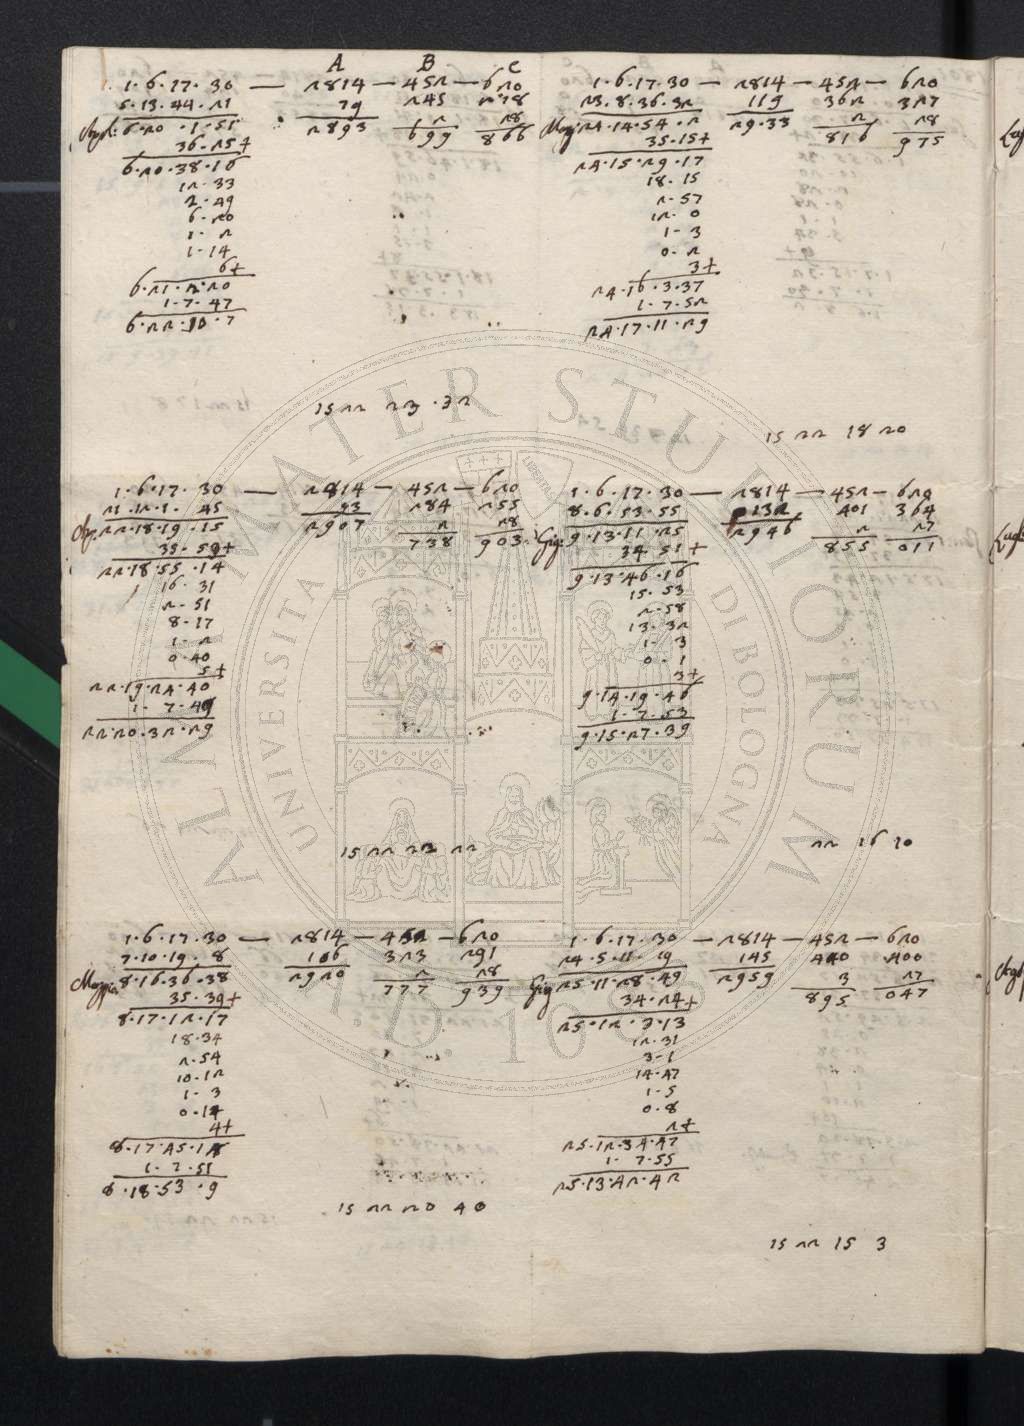 A B C
1·6·17·30 — 2814 — 452 — 620
5·13·44·21 79 245 218
Apl: 6·20·1·51 2893 2 28
699 866
36·25+
6·20·38·16
12·33
2·49
6·20
1·2
1·14
6+
6·21·2·20
1·7·47
6·22·10·7
15 22 23·32
1·6·17·30 — 2814 — 452 — 620
23·8·36·32 119 362 327
24·14·54·2 29·33 2 28
816 975
35·15+
24·15·29·17
18·15
2·57
12·0
1·3
0·2
3+
24·16·3·37
1·7·52
24·17·11·29
15 22 18 20
1·6·17·30 — 2814 — 452 — 620
21·12·1·45 93 284 255
22·18·19·15 2907 2 28
738 903
35·59+
22·18·55·14
16·31
2·51
8·17
1·2
0·40
5+
22·19·24·40
1·7·49
22·20·32·29
15 22 22 22
1·6·17·30 — 2814 — 452 — 620
8·6·53·55 132 401 364
Giug 9·13·11·25 2946 2 27
855 011
34 51+
9·13·46·16
15·53
2·58
13·32
1·3
0·1
3+
9·14·19·46
1·7·53
9·15·27·39
22 16 10
1·6·17·30 — 2814 — 452 — 620
7·10·19·8 106 323 291
Maggio 8·16·36·38 2920 2 28
777 939
35·39+
8·17·12·17
18·34
2·54
10·12
1·3
0·14
4+
8·17·45·18
1·7·51
8·18·53·9
15 22 20 40
1·6·17·30 — 2814 — 452 — 620
24·5·11·19 145 440 400
Giug 25·11·28·49 2959 3 27
895 047
34·24+
25·12·3·13
12·31
3·1
14·47
1·5
0·8
2+
25·12·34·47
1·7·55
25·13·42·42
15 22 15 3
ALMA MATER STUDIORUM
UNIVERSITA DI BOLOGNA
A.D. 1088